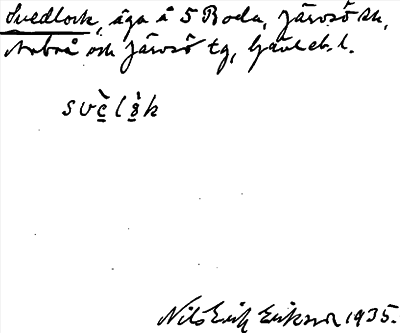 Svedlock, äga å 5 Boda, Järvsö sn,
Arbrå och Järvsö tg, Gävleb. l.
Nils Erik Erikson 1935.